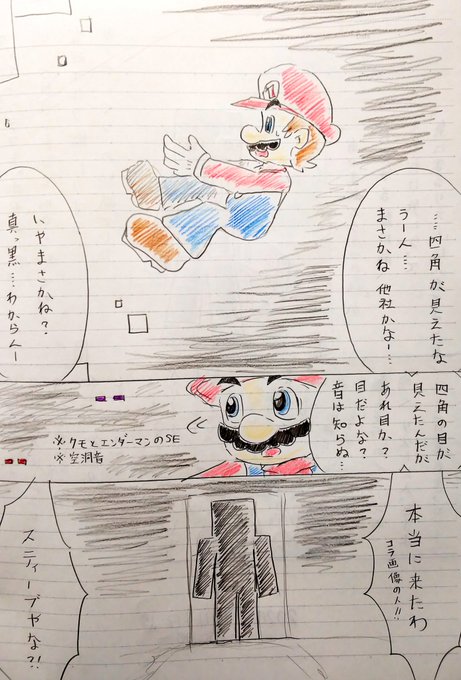 …四角が見えたな
うーん…
まさかね 他社かなー…
いやまさかね?
真っ黒…わからんー
四角の目が
見えたんだが
あれ目か?
目だよな?
音は知らぬ…
※クモとエンダーマンのSE
※空洞音
本当に来たわ
コラ画像の人!!
スティーブやな?!